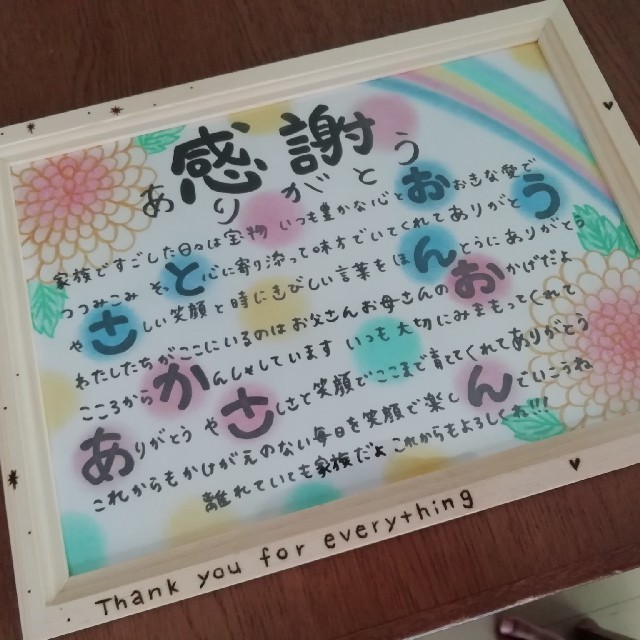 感謝
ありがとう
家族ですごした日々は宝物 いつも豊かな心とおおきな愛で
つつみこみ そっと心に寄り添って味方でいてくれてありがとう
やさしい笑顔と時にきびしい言葉をほんとうにありがとう
わたしたちがここにいるのはお父さんお母さんのおかげだよ
こころからかんしゃしています いつも大切にみまもってくれて
ありがとう やさしさと笑顔でここまで育ててくれてありがとう
これからもかけがえのない毎日を笑顔で楽しんでいこうね
離れていても家族だよ これからもよろしくね!!!
Thank you for everything